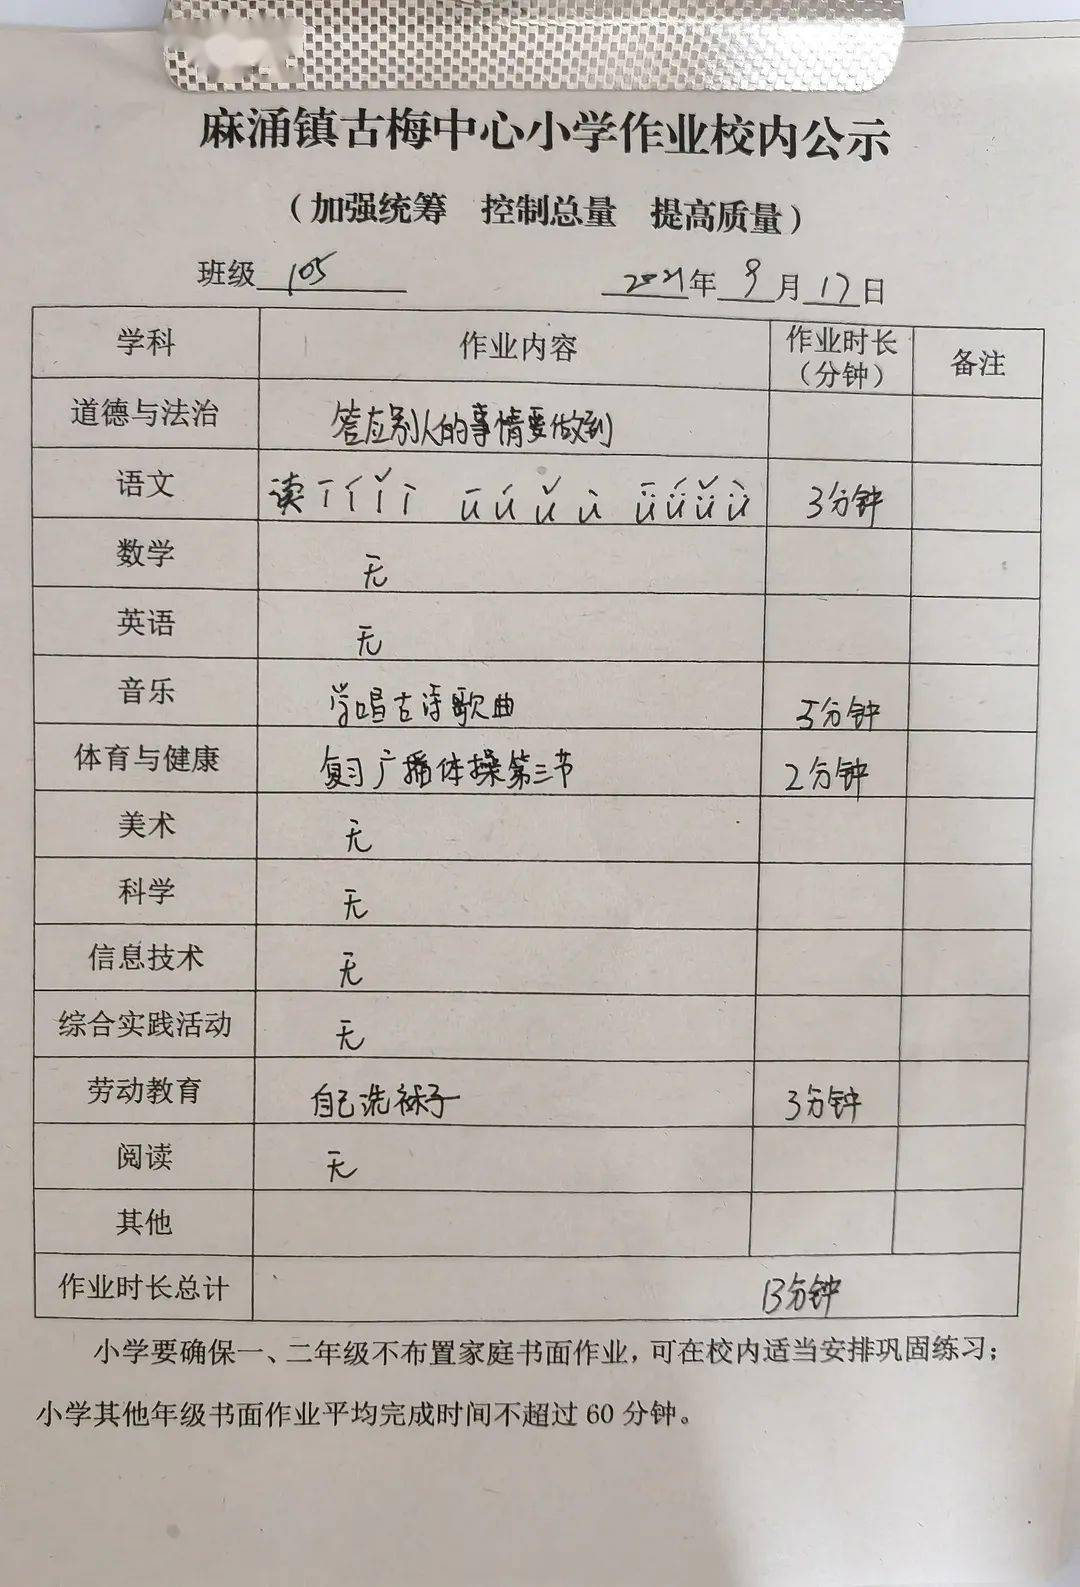 麻涌镇古梅中心小学作业校内公示
（加强统筹 控制总量 提高质量）
班级 105 2021年 9月 17日
学科 作业内容 作业时长（分钟） 备注
道德与法治 答应别人的事情要做到
语文 读 ī í ǐ ì ū ú ǔ ù ǖ ǘ ǚ ǜ 3分钟
数学 无
英语 无
音乐 学唱古诗歌曲 5分钟
体育与健康 复习广播体操第三节 2分钟
美术 无
科学 无
信息技术 无
综合实践活动 无
劳动教育 自己洗袜子 3分钟
阅读 无
其他
作业时长总计 13分钟
小学要确保一、二年级不布置家庭书面作业，可在校内适当安排巩固练习；
小学其他年级书面作业平均完成时间不超过 60 分钟。